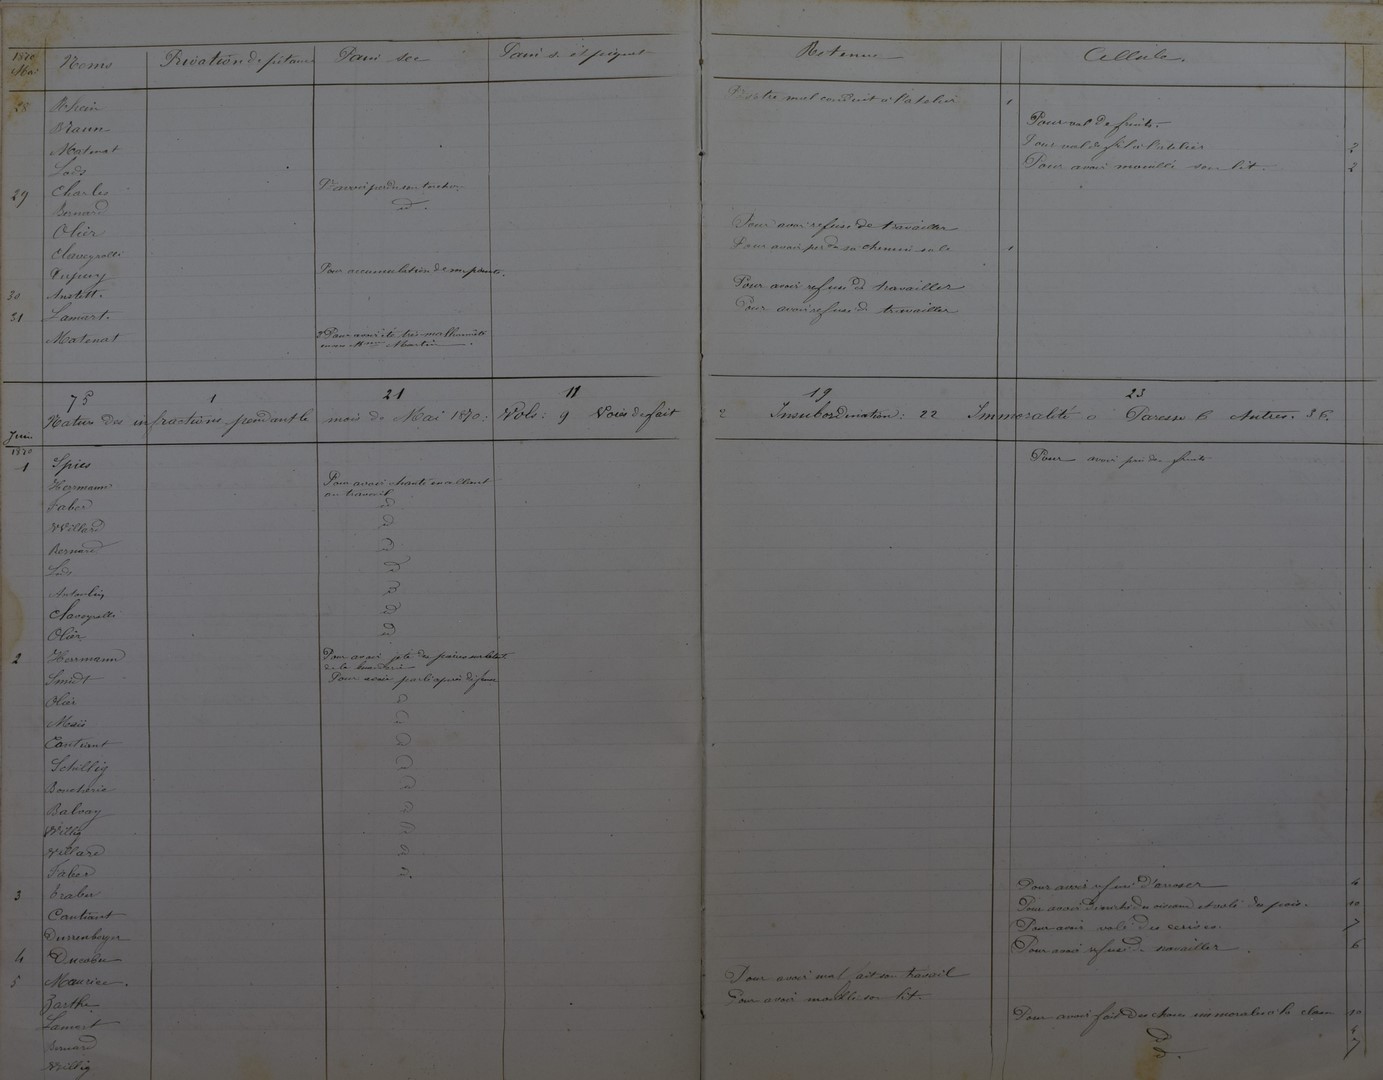 1870 Mai Noms Privation de pitance Pain sec Pain s. et piquet Retenue Cellule.
28 Rhein Pour être mal conduit à l'atelier 1
Braun Pour vol de fruits.
Matenat Pour vol de fil à l'atelier 2
Lods Pour avoir mouillé son lit. 2
29 Charles Pr avoir perdu son torchon
Bernard d°.
Olier Pour avoir refusé de travailler
Claveyrolle Pour avoir perdu sa chemise 1
Dupuy Pour accumulation de
30 Anstett. Pour avoir refusé de travailler
31 Lamart. Pour avoir refusé de travailler
Matenat 3 Pour avoir été très malhonnête
envers Mme Martin.
75 1 21 11 19 23
Nature des infractions pendant le mois de Mai 1870: Vols: 9 Voies de fait 2 Insubordination: 22 Immoralité 0 Paresse 6 Autres. 36.
Juin 1870
1 Spies Pour avoir pris des fruits
Herrmann Pour avoir chanté en allant
au travail
Faber d
Willard d
Bernard d
Lods d
d
Claveyrolle d
Olier d
2 Herrmann Pour avoir jeté des pierres sur le toit
de la
Smidt Pour avoir parlé après déjeuner
Olier d
d
Contriant d
Schillig d
Boucherie d
Balvay d
Willig d
Willard d
Faber d.
3 Traber Pour avoir refusé d'arroser 4
Contriant Pour avoir et volé des pois. 10
Durrenberger Pour avoir volé des cerises. 7
4 Pour avoir refusé de travailler. 6
5 Maurice. Pour avoir mal fait son travail
Barthe Pour avoir mouillé son lit.
Lamart Pour avoir fait des choses immorales à la classe 10
Bernard d
Willig d.° 7